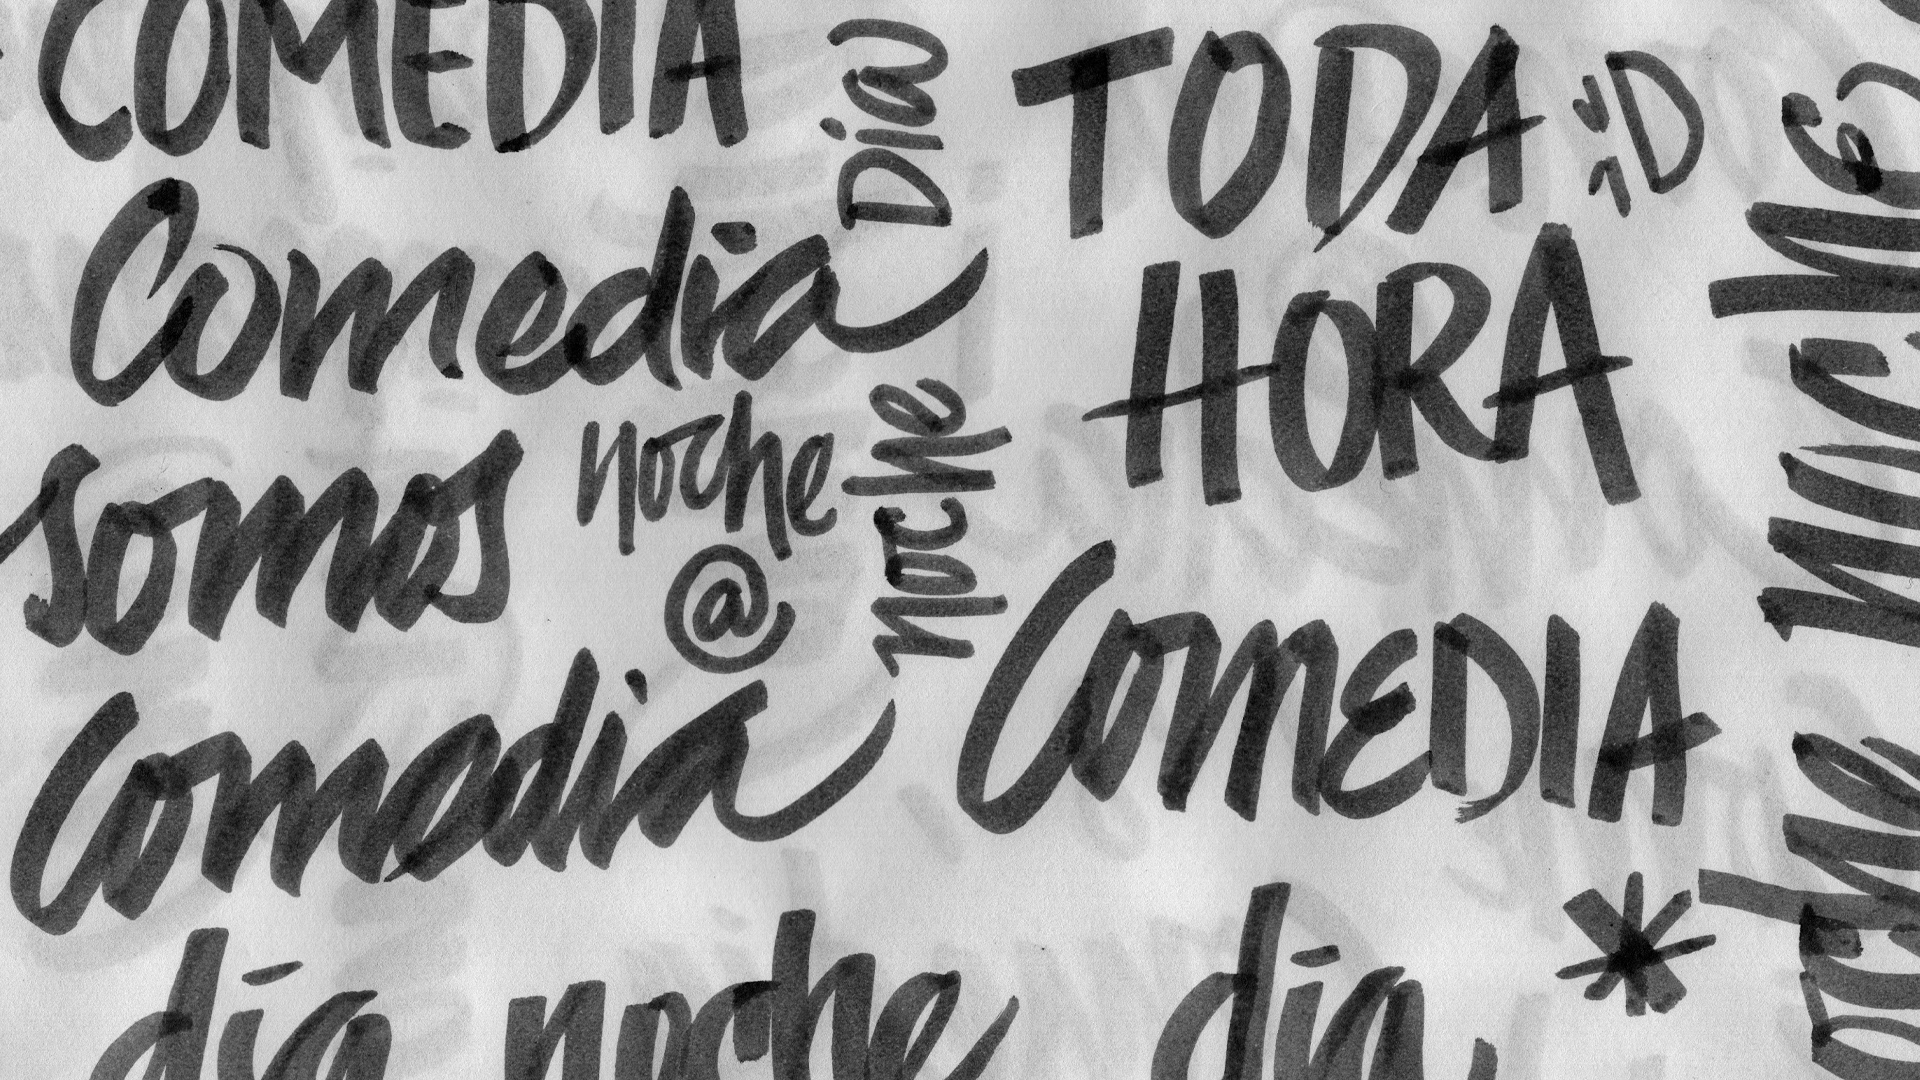 COMEDIA
Comedia
somos
noche
@
Comedia
día noche día
Día
noche
TODA
HORA
COMEDIA
*
D
noche
noche
noche